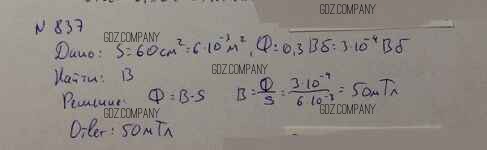 GDZ.COMPANY
N 837
Дано: S=60см²=6·10⁻³м², Ф=0,3Вб=3·10⁻⁴Вб
GDZ.COMPANY
Найти: B
GDZ.COMPANY
Решение: Ф=B·S B=Ф/S=3·10⁻⁴/6·10⁻³=50мТл
GDZ.COMPANY
GDZ.COMPANY
Ответ: 50мТл
GDZ.COMPANY